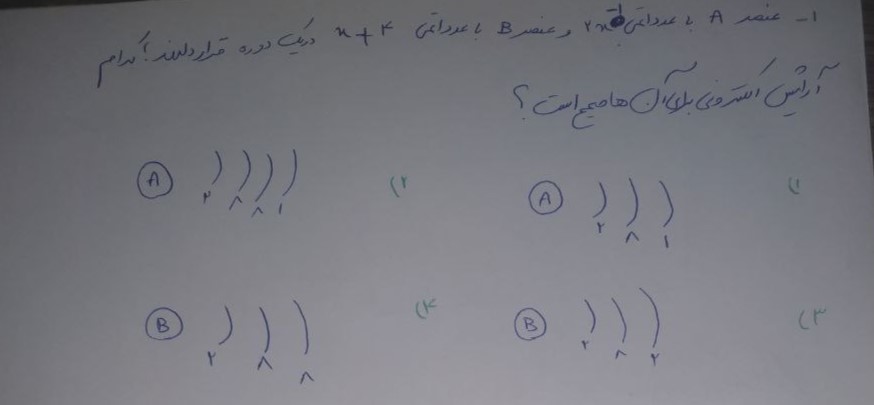 ۱- عنصر A با عدد اتمی ۲x-۱ و عنصر B با عدد اتمی x+۴ در یک دوره قرار دارند! کدام
آرایش الکترونی برای آن ها صحیح است؟
۱) A ۲ ۸ ۱
۲) A ۲ ۸ ۸ ۱
۳) B ۲ ۸ ۲
۴) B ۲ ۸ ۸